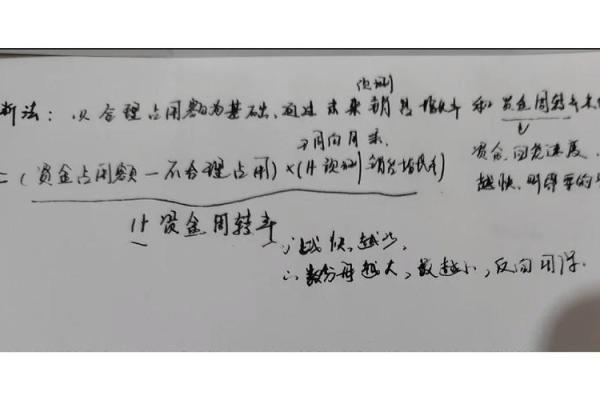 预测
析法：以合理占用额为基础，通过未来销售增长率和资金周转率来
同向关系
资金回笼速度
=(资金占用额－不合理占用)×(1+预测销售增长率)
越快，所需要的
1+资金周转率
∵越快，越少
∴数分母越大，数越小，反向用除.